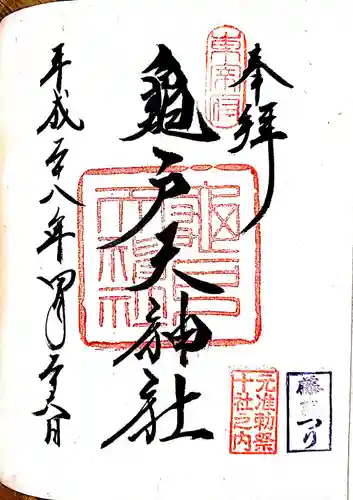 奉拝
東宰府
龜戸天神社
亀戸天神社
元准勅祭
十社之内
平成二十八年四月二十八日